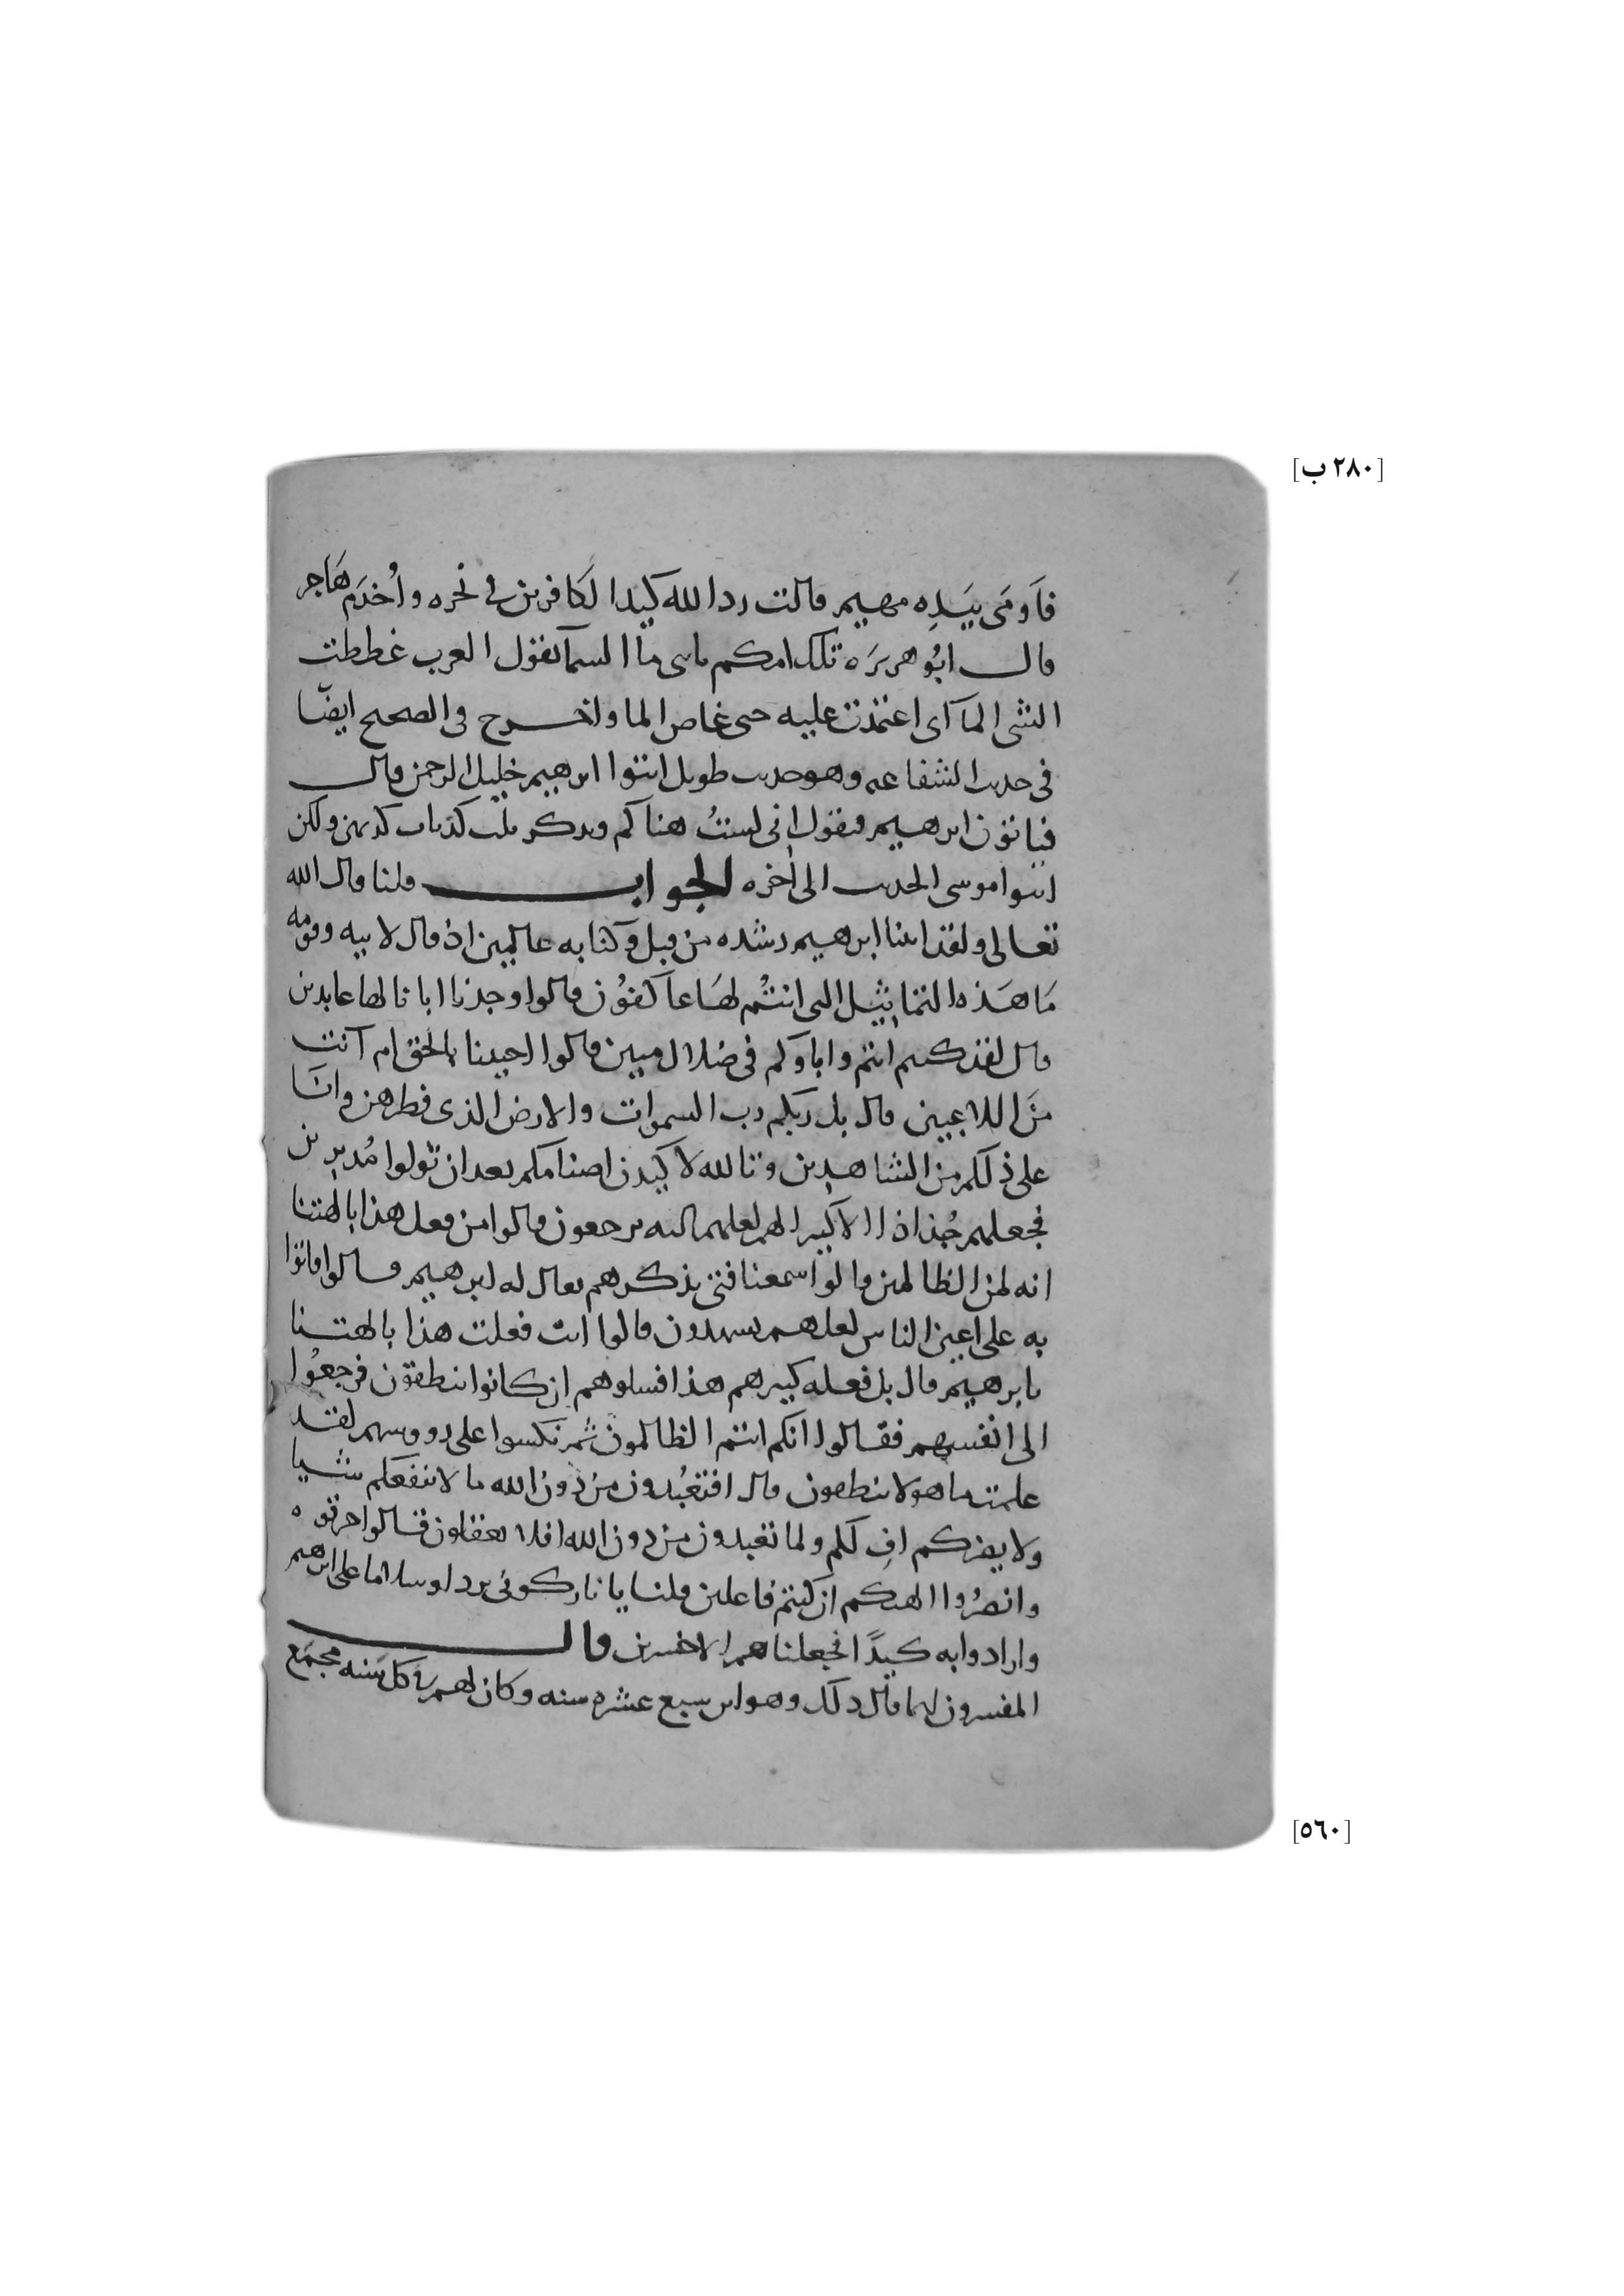 [٢٨٠ ب]
فأومى بيَدِه مهيم قالت رد الله كيد الكافرين في نحره وأُخدَم هَاجر
قال ابُو هريرَه تلك امكم يابني ماء السما تقول العرب غططت
الشي الماء اي اعتمدت عليه حتى غاص الما واخرج في الصحيح ايضًا
في حديث الشفاعه وهو حديث طويل ائتوا ابرهيم خليل الرحمن قال
فياتون ابرهيم فيقول اني لستُ هناكم ويذكر ثلث كذبات كذبهن ولكن
ائتوا موسى الحديث الى أخره الجواب قلنا قال الله
تعالى ولقد اتينا ابرهيم رشده من قبل وكنا به عالمين اذ قال لابيه وقومه
مَا هَذه التماثيل التي انتُم لهَا عاكفوُن قالوا وجدنا ابانا لها عابدين
قال لقد كنتم انتم واباوكم في ضلال مبين قالوا اجيتنا بالحق ام انت
منَ اللاعبين قال بل ربكم رب السموات والارض الذي فطرهن وانَا
على ذلكم من الشاهدين وتالله لاكيدن اصنامكم بعد ان تولوا مُدبرين
فجعلهم جُذاذا الا كبيرا لهم لعلهم اليه يرجعون قالوا من فعل هذا بالهتنا
انه لمن الظالمين قالوا سمعنا فتى يذكرهم يقال له ابرهيم قالوا فاتوا
به على اعين الناس لعلهم يشهدون قالوا انت فعلت هذا بالهتنا
يابرهيم قال بل فعله كبيرهم هذا فسلوهم ان كانوا ينطقون فرجعُوا
الى انفسهم فقالوا انكم انتم الظالمون ثم نكسوا على رووسهم لقد
علمت ما هولا ينطقون قال افتعبُدون من دون الله ما لا ينفعكم شيا
ولا يضركم اف لكم ولما تعبدون من دون الله افلا تعقلون قالوا حرقوه
وانصرُوا الهتكم ان كنتم فاعلين قلنا يا نار كوني بردا وسلاما على ابرهيم
وارادوا به كيدًا فجعلناهم الاخسرين قال
المفسرون انما قال ذلك وهو ابن سبع عشره سنه وكان لهم في كل سَنه مجمَع
[٥٦٠]